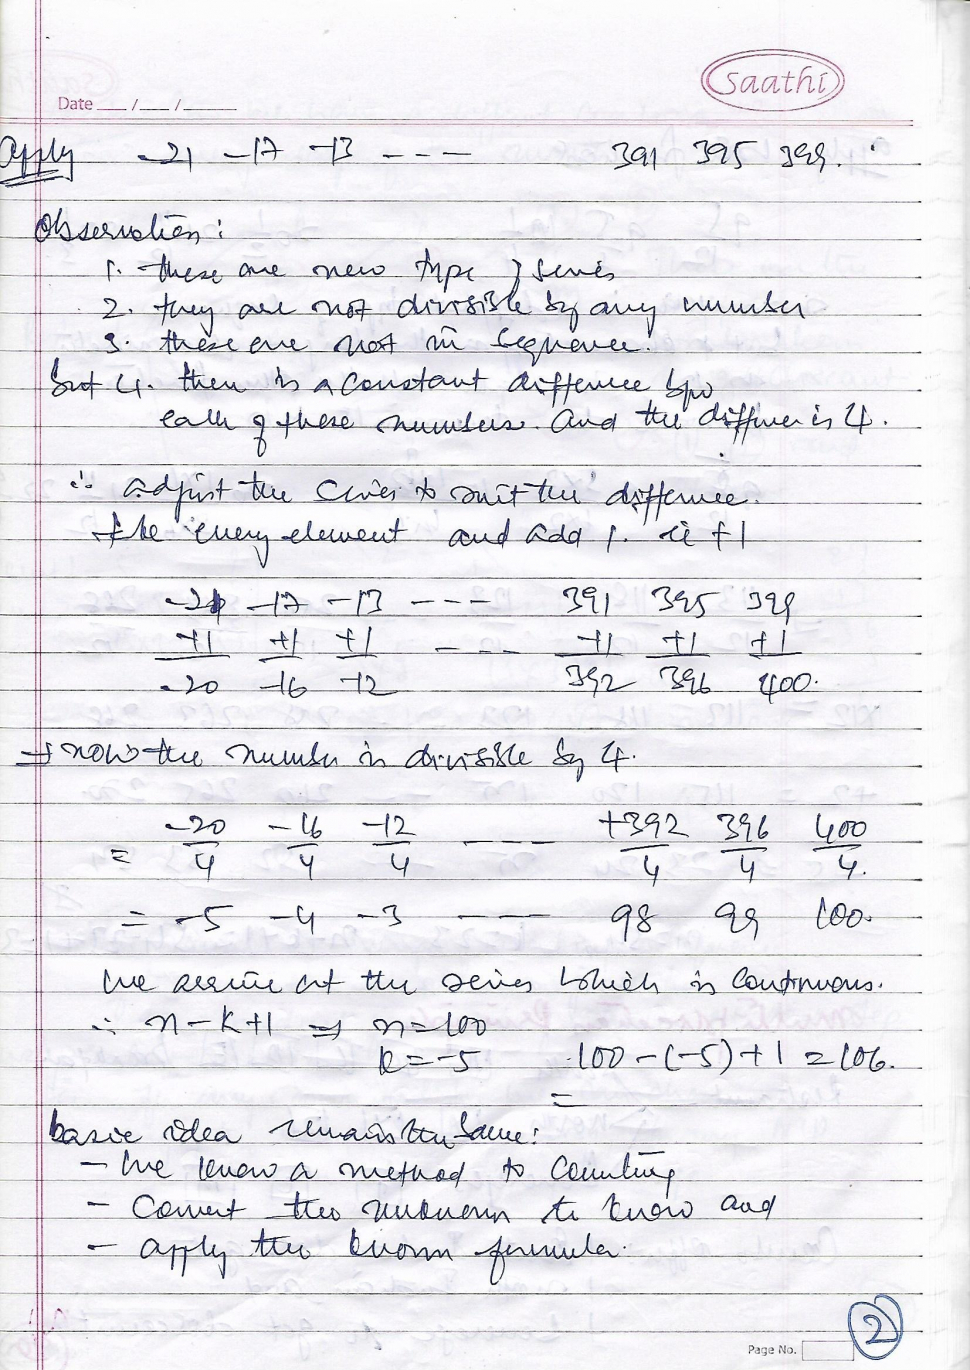 Saathi
Date ___/___/______
Apply -21 -17 -13 --- 391 395 399.
Observation:
1. these are new type of series
2. they are not divisible by any number
3. these are not in sequence.
but 4. there is a constant difference btw
each of these numbers. and the differene is 4.
∴ adjust the series to suit the difference.
Take every element and add 1. ie +1
-21 -17 -13 --- 391 395 399
+1 +1 +1 --- +1 +1 +1
-20 -16 -12 392 396 400.
→ now the number is divisible by 4.
= -20/4 -16/4 -12/4 --- +392/4 396/4 400/4.
= -5 -4 -3 --- 98 99 100.
We arrive at the series which is continuous.
∴ n-k+1 ⇒ n=100
k=-5 100-(-5)+1 = 106.
=
basic idea remains the same:
- We know a method to counting
- Convert the unknown to know and
- apply the known formula.
Page No.
2